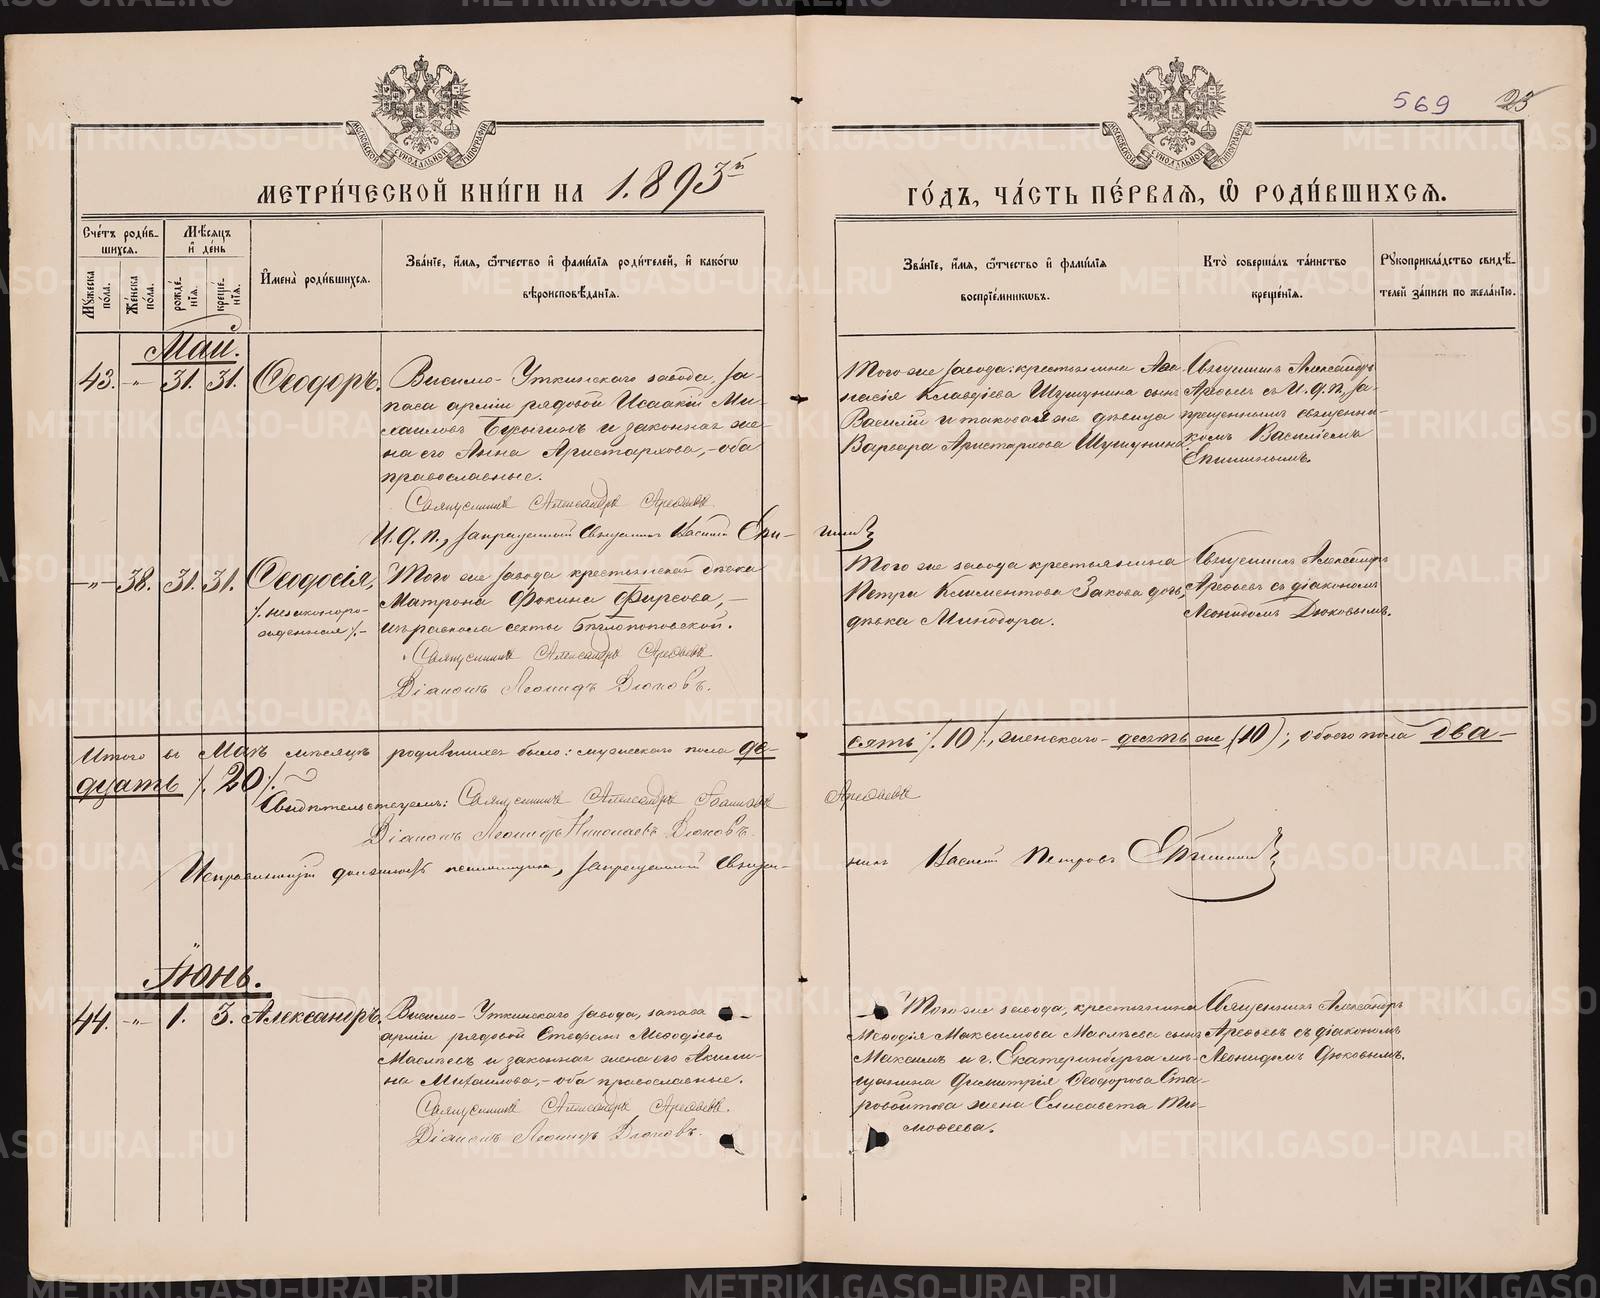 569 25
МОСКОВСКОЙ СѴНОДАЛЬНОЙ ТИПОГРАФІИ
МОСКОВСКОЙ СѴНОДАЛЬНОЙ ТИПОГРАФІИ
МЕТРИ́ЧЕСКОЙ КНИ́ГИ НА 1893й ГО́ДЪ, ЧА́СТЬ ПЕ́РВАЯ, Ѽ РОДИ́ВШИХСЯ.
Сче́тъ роди́в-
шихся.
Мѣ́сяцъ
и҆ де́нь
Му́жеска по́ла.
Же́нска по́ла.
рожде́-
нїя.
креще́-
нїя.
И҆мена̀ роди́вшихся.
Зва́нїе, и҆́мя, ѻ҆́тчество и҆ фами́лїя роди́телей, и҆ како́гѡ
вѣроисповѣ́данїя.
Зва́нїе, и҆́мя, ѻ҆́тчество и҆ фами́лїя
воспрїе́мникѡвъ.
Кто̀ соверша́лъ та́инство
креще́нїя.
Рꙋкоприкла́дство свидѣ́-
телей за́писи по жела́нїю.
Май.
43. -"- 31. 31. Ѳеодоръ.
Висимо-Уткинскаго завода, за-
паса арміи рядовой Исаакій Ми-
хаиловъ Бусыгинъ и законная же-
на его Анна Аристархова,- оба
православные.
Священникъ Александръ Арефьевъ
И. д. п., запрещенный священникъ Василій Епи-
шинъ
Того-же завода: крестьянина Аѳа-
насія Клавдіева Шушунина сынъ
Василій и таковая же дѣвица
Варвара Аристархова Шушунина
Священникъ Александръ
Арефьевъ съ И. д. п. за-
прещеннымъ священни-
комъ Василіемъ
Епишинымъ.
-"- 38. 31. 31. Ѳеодосія,
/. незаконоро-
жденная /.-
Того же завода крестьянская дѣвка
Матрона Фокина Фирсова,-
изъ раскола секты бѣглопоповской.
Священникъ Александръ Арефьевъ
Діаконъ Леонидъ Дюковъ.
Того же завода крестьянина
Петра Климентова Закова дочь,
дѣвка Минодора.
Священникъ Александръ
Арефьевъ съ діакономъ
Леонидомъ Дюковымъ.
Итого въ Маѣ мѣсяцѣ родившихся было: мужескаго пола де-
сять /.10/., женскаго- десять же (10); обоего пола два-
дцать /. 20/.
Свидѣтельствуемъ: Священникъ Александръ Арефьевъ
Діаконъ Леонидъ Николаевъ Дюковъ.
Исправляющій должность псаломщика, запрещенный Священ-
никъ Василій Петровъ Епишинъ
Іюнь.
44. -"- 1. 3. Александръ.
Висимо-Уткинскаго завода, запаса
арміи рядовой Стефанъ Меѳодіевъ
Масляевъ и законная жена его Акили-
на Михаилова,- оба православные.
Священникъ Александръ Арефьевъ.
Діаконъ Леонидъ Дюковъ.
Того-же завода, крестьянина
Меѳодія Максимова Масляева сынъ
Максимъ и г. Екатеринбурга мѣ-
щанина Димитрія Ѳеодорова Ста-
ровойтова жена Елисавета Ти-
моѳеева.
Священникъ Александръ
Арефьевъ съ діакономъ
Леонидомъ Дюковымъ.
METRIKI.GASO-URAL.RU